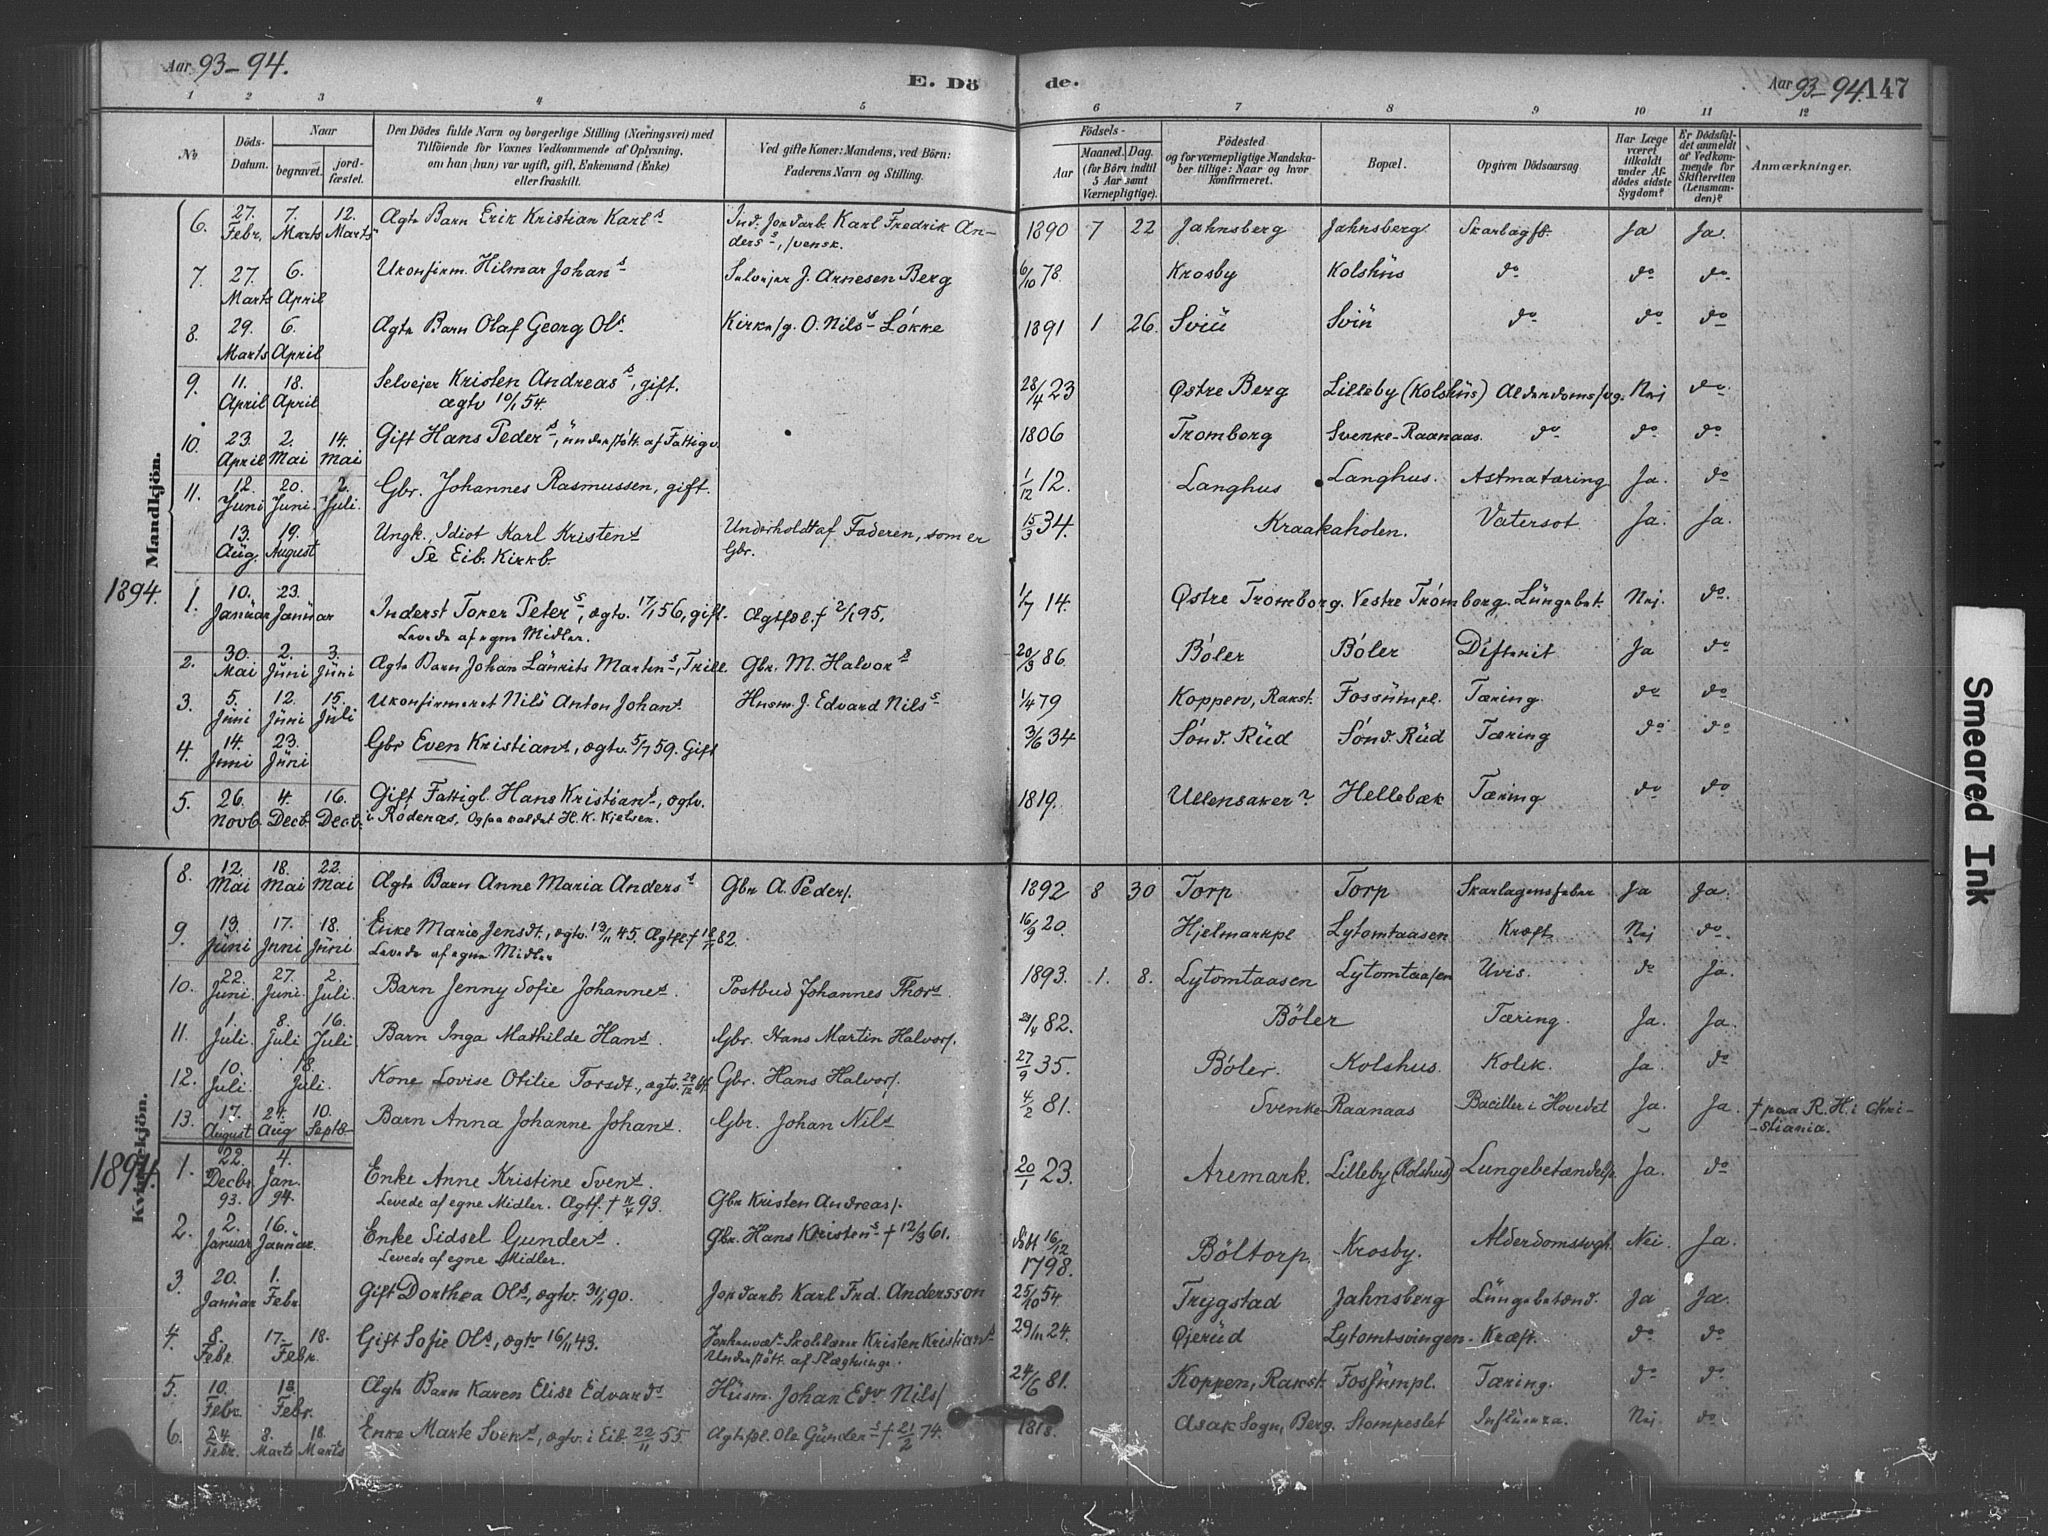 Aar 93-94. E. Döde. Aar 93-94. 147
1 2 3 4 5 6 7 8 9 10 11 12
No Döds-Datum. Naar begravet. jord-fæstet. Den Dödes fulde Navn og borgerlige Stilling (Næringsvei) med Tilföiende for Voxnes Vedkommende af Oplysning, om han (hun) var ugift, gift, Enkemand (Enke) eller fraskilt. Ved gifte Koner: Mandens, ved Börn: Faderens Navn og Stilling. Födsels- Aar Maaned. Dag. (for Börn indtil 5 Aar samt Værnepligtige). Födested og for værnepligtige Mandskaber tillige: Naar og hvor konfirmeret. Bopæl. Opgiven Dödsaarsag. Har Læge været tilkaldt under Afdödes sidste Sygdom? Er Dödsfaldet anmeldt af Vedkommende for Skifteretten (Lensmanden)? Anmærkninger.
Mandkjön.
6. 27. Febr. 7. Marts 12. Marts Ægte Barn Erik Kristian Karls Ind. Jordarb. Karl Fredrik Anderss, svensk. 1890 7 22 Jahnsberg Jahnsberg. Skarlagfb. Ja Ja.
7. 27. Marts 6. April Ukonfirm. Hilmar Johans Selvejer J. Arnesen Berg 6/10 78. Krosby Kolshüs do do do
8. 29. Marts 6. April Ægte Barn Olaf Georg Ols. Kirkes. O. Nilss Løkke 1891 1 26. Sviü Sviü do do do
9. 11. April 18. April Selvejer Kristen Andreass, gift. ægtv 10/1 54. 28/4 23 Østre Berg Lilleby (Kolshüs) Alderdomssvg. Nej do
10. 23. April 2. Mai 14. Mai Gift Hans Peders, ünderstött. af Fattigv. 1806 Tromborg Svenke-Raanaas. do do do
11. 12. Juni 20. Juni. 2. Juli. Gbr. Johannes Rasmussen, gift. 1/12 12. Langhus Langhus. Astmatæring Ja. do
13. Aüg. 19. August Ungk., Idiot Karl Kristens Se Eib. Kirkb. Underholdt af Faderen, som er Gbr. 15/3 34. Kraakaholen. Vatersot. Ja. Ja.
1894.
1. 10. Januär 23. Januär Inderst Torer Peters, ægtv. 17/1 56, gift. Levede af egne Midler. Ægtfæl. † 2/1 95. 1/7 14. Østre Tromborg. Vestre Trömborg. Lüngebet. Nej. do.
2. 30. Mai 2. Jüni 3. Jüni Ægte Barn Johan Lauritz Martins, Trill. Gbr. M. Halvors 20/3 86. Böler Böler Difterit Ja do
3. 5. Jüni 12. Jüni 15. Jüli Ukonfirmeret Nils Anton Johans. Husm. J. Edvard Nilss 1/4 79 Koppen, Rakst. Fossümpl. Tæring do do
4. 14. Juni 23. Jüni Gbr Even Kristians, ægtv. 5/7 59. Gift 3/6 34 Sönd. Rüd Sönd. Rüd Tæring do do
5. 26. Novb. 4. Decb. 16. Decb. Gift Fattigl. Hans Kristians, ægtv. i Rödenæs. Ogsaa kaldet H. K. Kjelsen. 1819. Ullensaker? Hellebæk Tæring do do
Kvindekjön.
8. 12. Mai 18. Mai 22. Mai Ægte Barn Anne Maria Anderss Gbr A. Peders. 1892 8 30 Torp Torp Skarlagensfeber Ja Ja.
9. 13. Jüni 17. Juni 18. Jüni Enke Marie Jensdt., ægtv. 13/11 45. Ægtfl. † 82. Levede af egne Midler 16/9 20. Hjelmarkpl Lytomtaasen Kræft Nej do.
10. 22. Juni 27. Juni 2. Juli. Barn Jenny Sofie Johannes. Postbud Johannes Thors. 1893. 1. 8. Lytomtaasen Lytomtaasen Uvis. do Ja.
11. 1. Juli. 8. Juli 16. Juli. Barn Inga Mathilde Hans. Gbr. Hans Martin Halvors. 82. Böler Tæring. Ja. Ja.
12. 10. Juli. 18. Juli. Kone Lovise Otilie Torsdt., ægtv. Gbr. Hans Halvors. 27/9 35. Böler. Kolshus. Kolik. Ja. do
13. 17. August 24. Aug 10. Septb. Barn Anna Johanne Johans. Gbr. Johan Nils 4/2 81. Svenke-Raanaas Baciller i Hovedet Ja. Ja. † paa R. H. i Christiania.
1894.
1. 22. Decbr. 93. 4. Jan. 94. Enke Anne Kristine Svens. Levede af egne Midler. Ægtf. † 11/4 93. Gbr Kristen Andreas. 20/1 23. Aremark. Lilleby (Kolshus) Lungebetændelse Ja. do
2. 2. Januar 16. Januär. Enke Sidsel Gunders. Levede af egne Midler. Gbr. Hans Kristens † 12/3 61. döbt 16/12 1798. Böltorp. Krosby. Alderdomssvgh. Nei. Ja.
3. 20. Januär 1. Febr. Gift Dorthea Ols, ægtv. 31/1 90. Jordarb. Karl Frd. Andersson 25/10 54. Trygstad Jahnsberg Lüngebetænd. Ja Ja.
4. 8. Febr. 17. Febr. 18. Gift Sofie Ols, ægtv 16/11 43. Forhenvæ. Skolelærer Kristen Kristians Understött. af Slægtninge. 29/11 24. Øjerüd Lytomtsvingen. Kræft. do do
5. 10. Febr. 18. Febr. Ægte Barn Karen Elise Edvards Hüsm. Johan Edv. Nils. 24/6 81. Koppen, Rakst. Fossümpl. Tæring. do do
6. 24. Febr. 8. Marts 18. Marts Enke Marte Svens, ægtv. i Eib. 22/11 55. Ægtsfæl. Ole Günders † 21/2 74. 1818. Asak Sogn, Berg. Stompeslet Influenza. Nej do
Smeared Ink